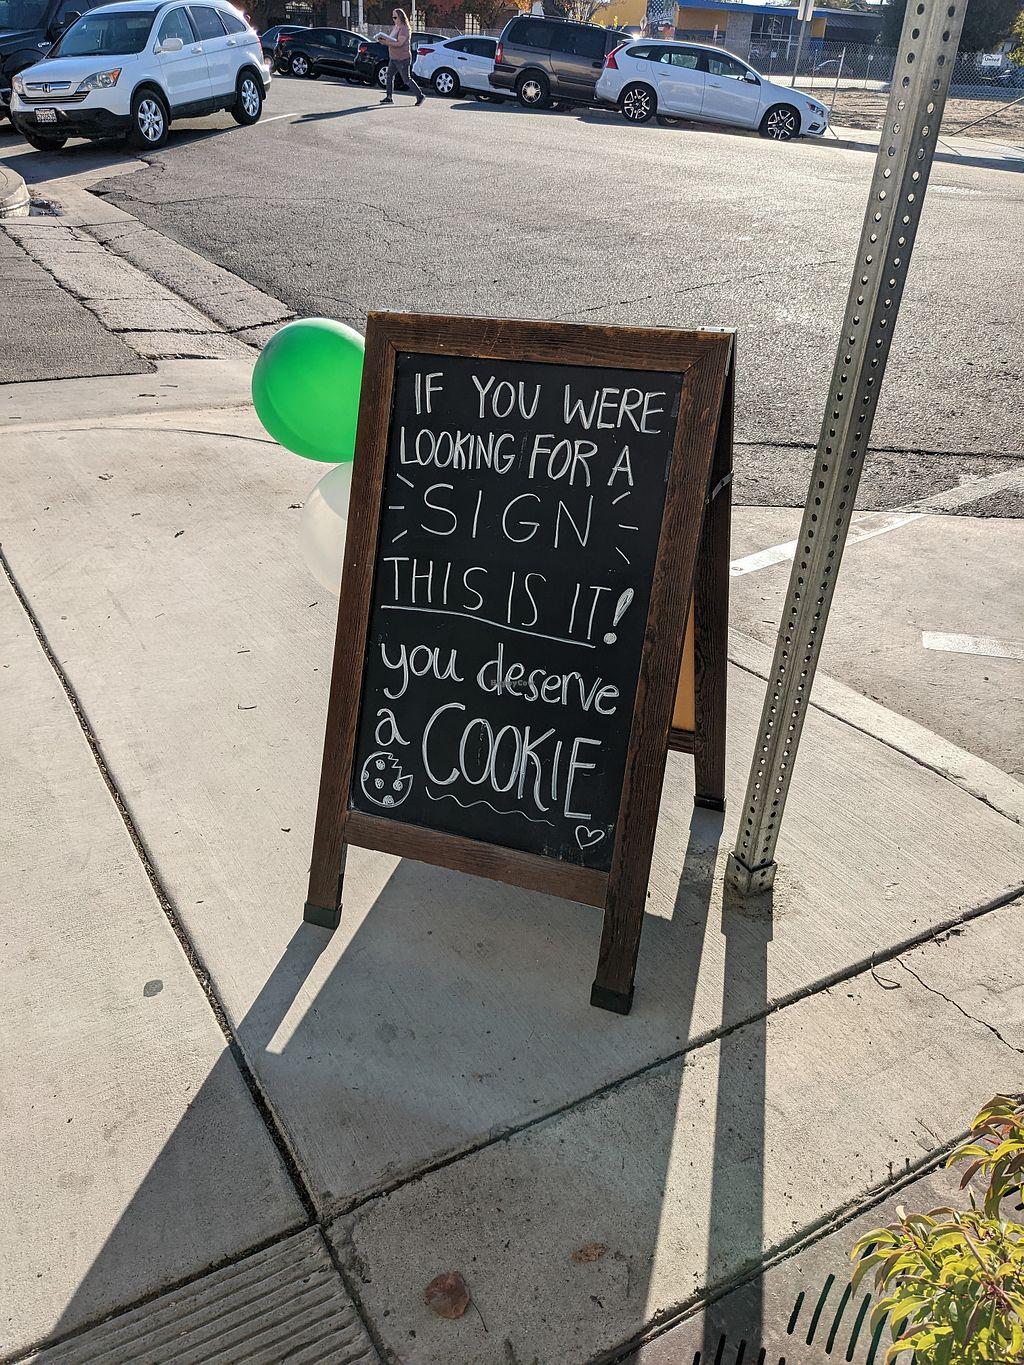 IF YOU WERE
LOOKING FOR A
SIGN
THIS IS IT!
you deserve
a COOKIE